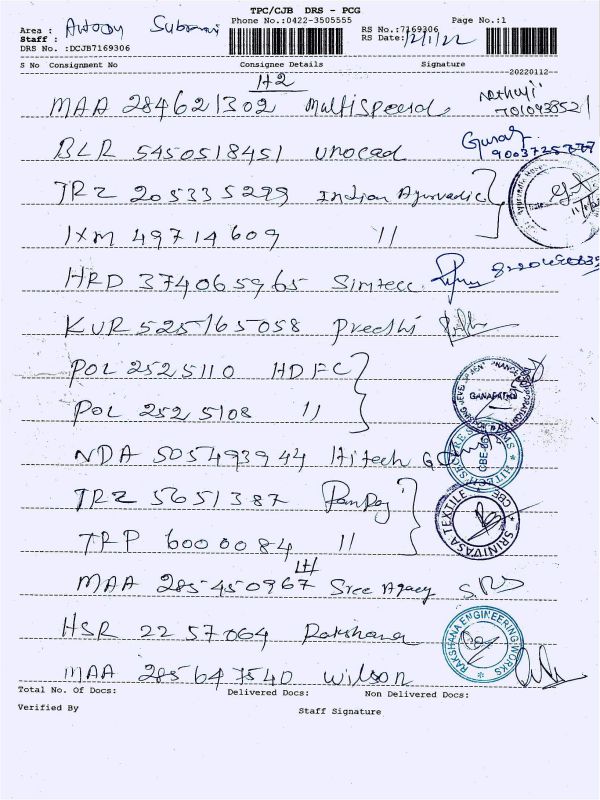 TPC/CJB DRS - PCG
Area : Phone No.:0422-3505555 Page No.:1
Staff : RS No.:7169306
DRS No. :DCJB7169306 RS Date: 12/1/22
S No Consignment No Consignee Details Signature
20220112
H2
MAA 284621302 Multispeed 7010938521
BLR 5450518451 unocad
TRZ 205335299 Indian Ayurvadic
IXM 49714609 11
HRD 374065965 Simtecc
KUR 525165058 Preethi
POL 2525110 HDFC
GANAPATHY
POL 2525108 11
NDA 505493944 Hitech
CBE-06
TRZ 5651387
SRINIVASA TEXTILE * CBE *
TRP 6000084 11
MAA 285450967 Sree Agaey SRS
HSR 2257064 Rakshana
RAKSHANA ENGINEERING WORKS
MAA 285647540 Wilson
Total No. Of Docs: Delivered Docs: Non Delivered Docs:
Verified By Staff Signature